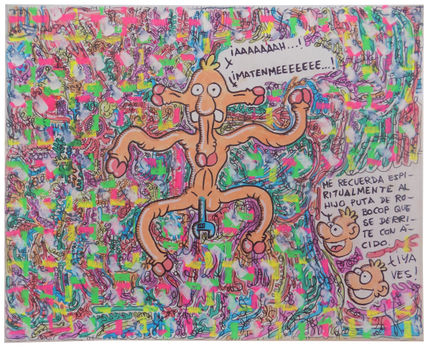 ¡AAAAAAAH...!
¡MATENMEEEEEEE...!
ME RECUERDA ESPI-
RITUALMENTE AL
HIJO PUTA DE RO-
BOCOP QUE
SE DERRI-
TE CON Á-
CIDO.
¡YA
VES!